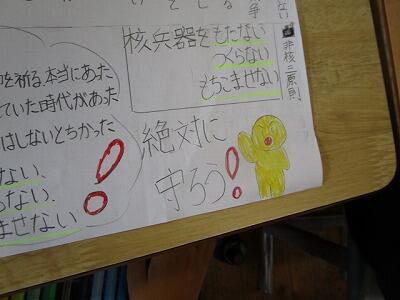 非核三原則
核兵器をもたない
つくらない
もちこませない
を祈る.本当にあった
ていた時代があった
はしないとちかった
ない、
らない、
ませない!
絶対に
守ろう!